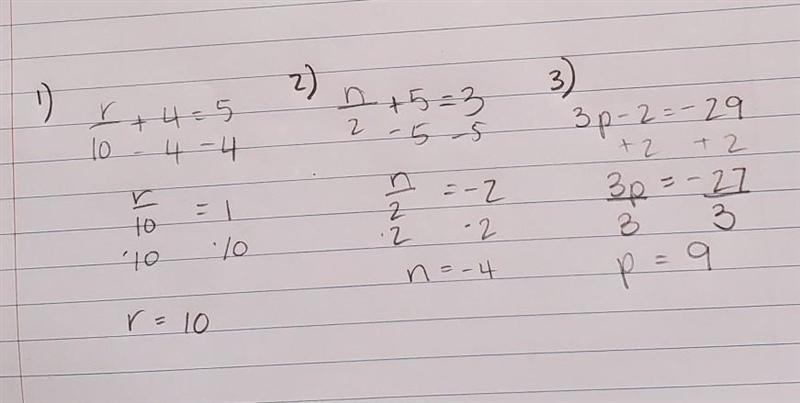 1)
r/10 + 4 = 5
- 4 - 4
r/10 = 1
·10 ·10
r = 10
2)
n/2 + 5 = 3
- 5 - 5
n/2 = -2
·2 ·2
n = -4
3)
3p - 2 = -29
+2 +2
3p/3 = -27/3
p = 9